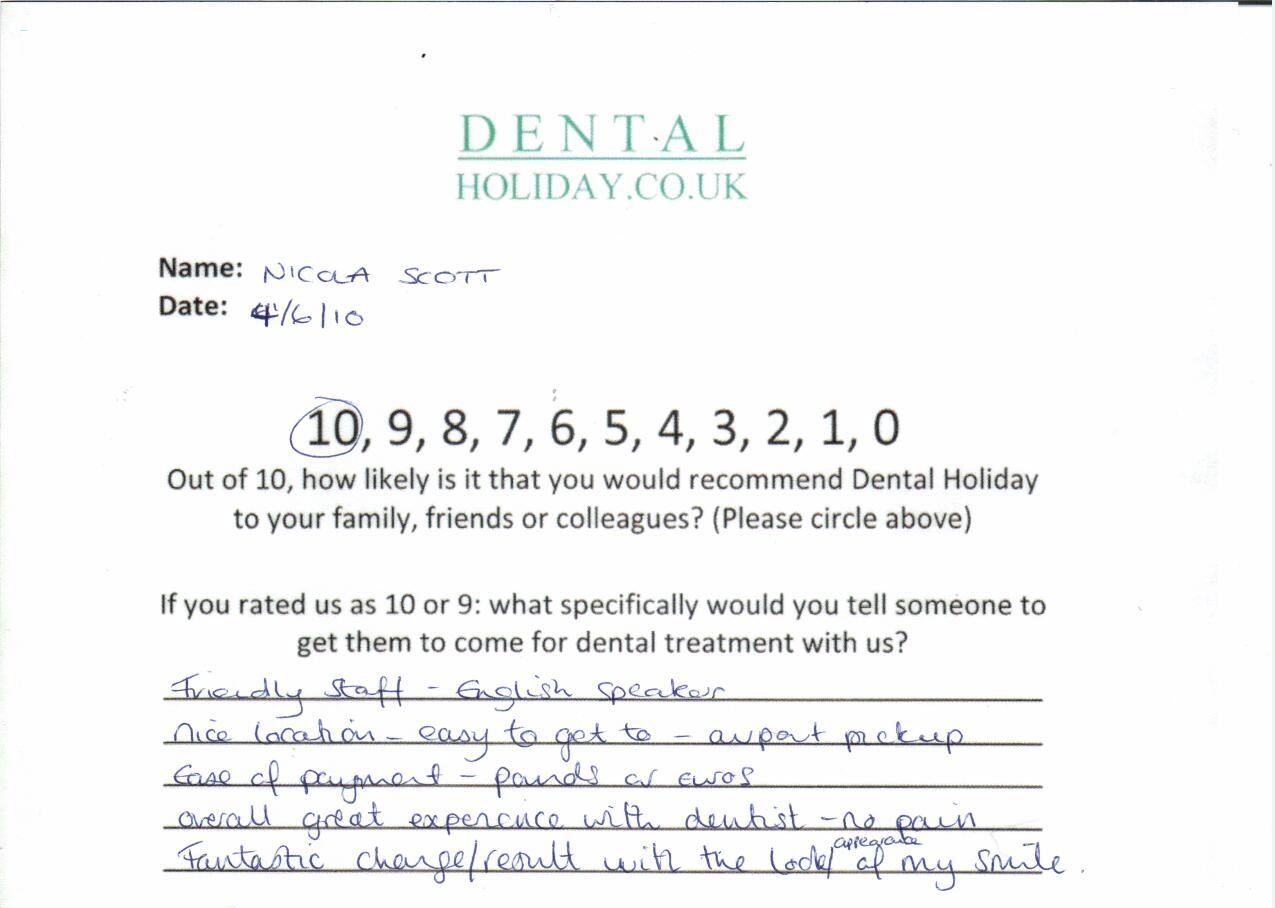 DENTAL
HOLIDAY.CO.UK
Name: NICOLA SCOTT
Date: 4/6/10
10, 9, 8, 7, 6, 5, 4, 3, 2, 1, 0
Out of 10, how likely is it that you would recommend Dental Holiday
to your family, friends or colleagues? (Please circle above)
If you rated us as 10 or 9: what specifically would you tell someone to
get them to come for dental treatment with us?
Friendly staff - English speaker
nice location - easy to get to - airport pickup
Ease of payment - pounds or euros
overall great experience with dentist - no pain
Fantastic change/result with the look/ appearance of my smile.